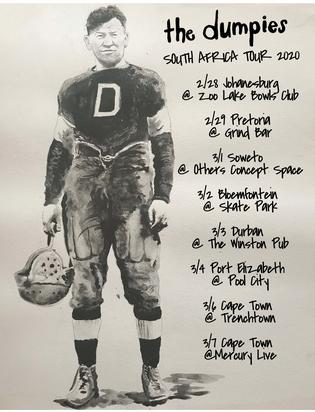 the dumpies
SOUTH AFRICA TOUR 2020
2/28 Johanesburg
@ Zoo Lake Bowls Club
2/29 Pretoria
@ Grind Bar
3/1 Soweto
@ Others Concept Space
3/2 Bloemfontein
@ Skate Park
3/3 Durban
@ The Winston Pub
3/4 Port Elizabeth
@ Pool City
3/6 Cape Town
@ Trenchtown
3/7 Cape Town
@Mercury Live
D